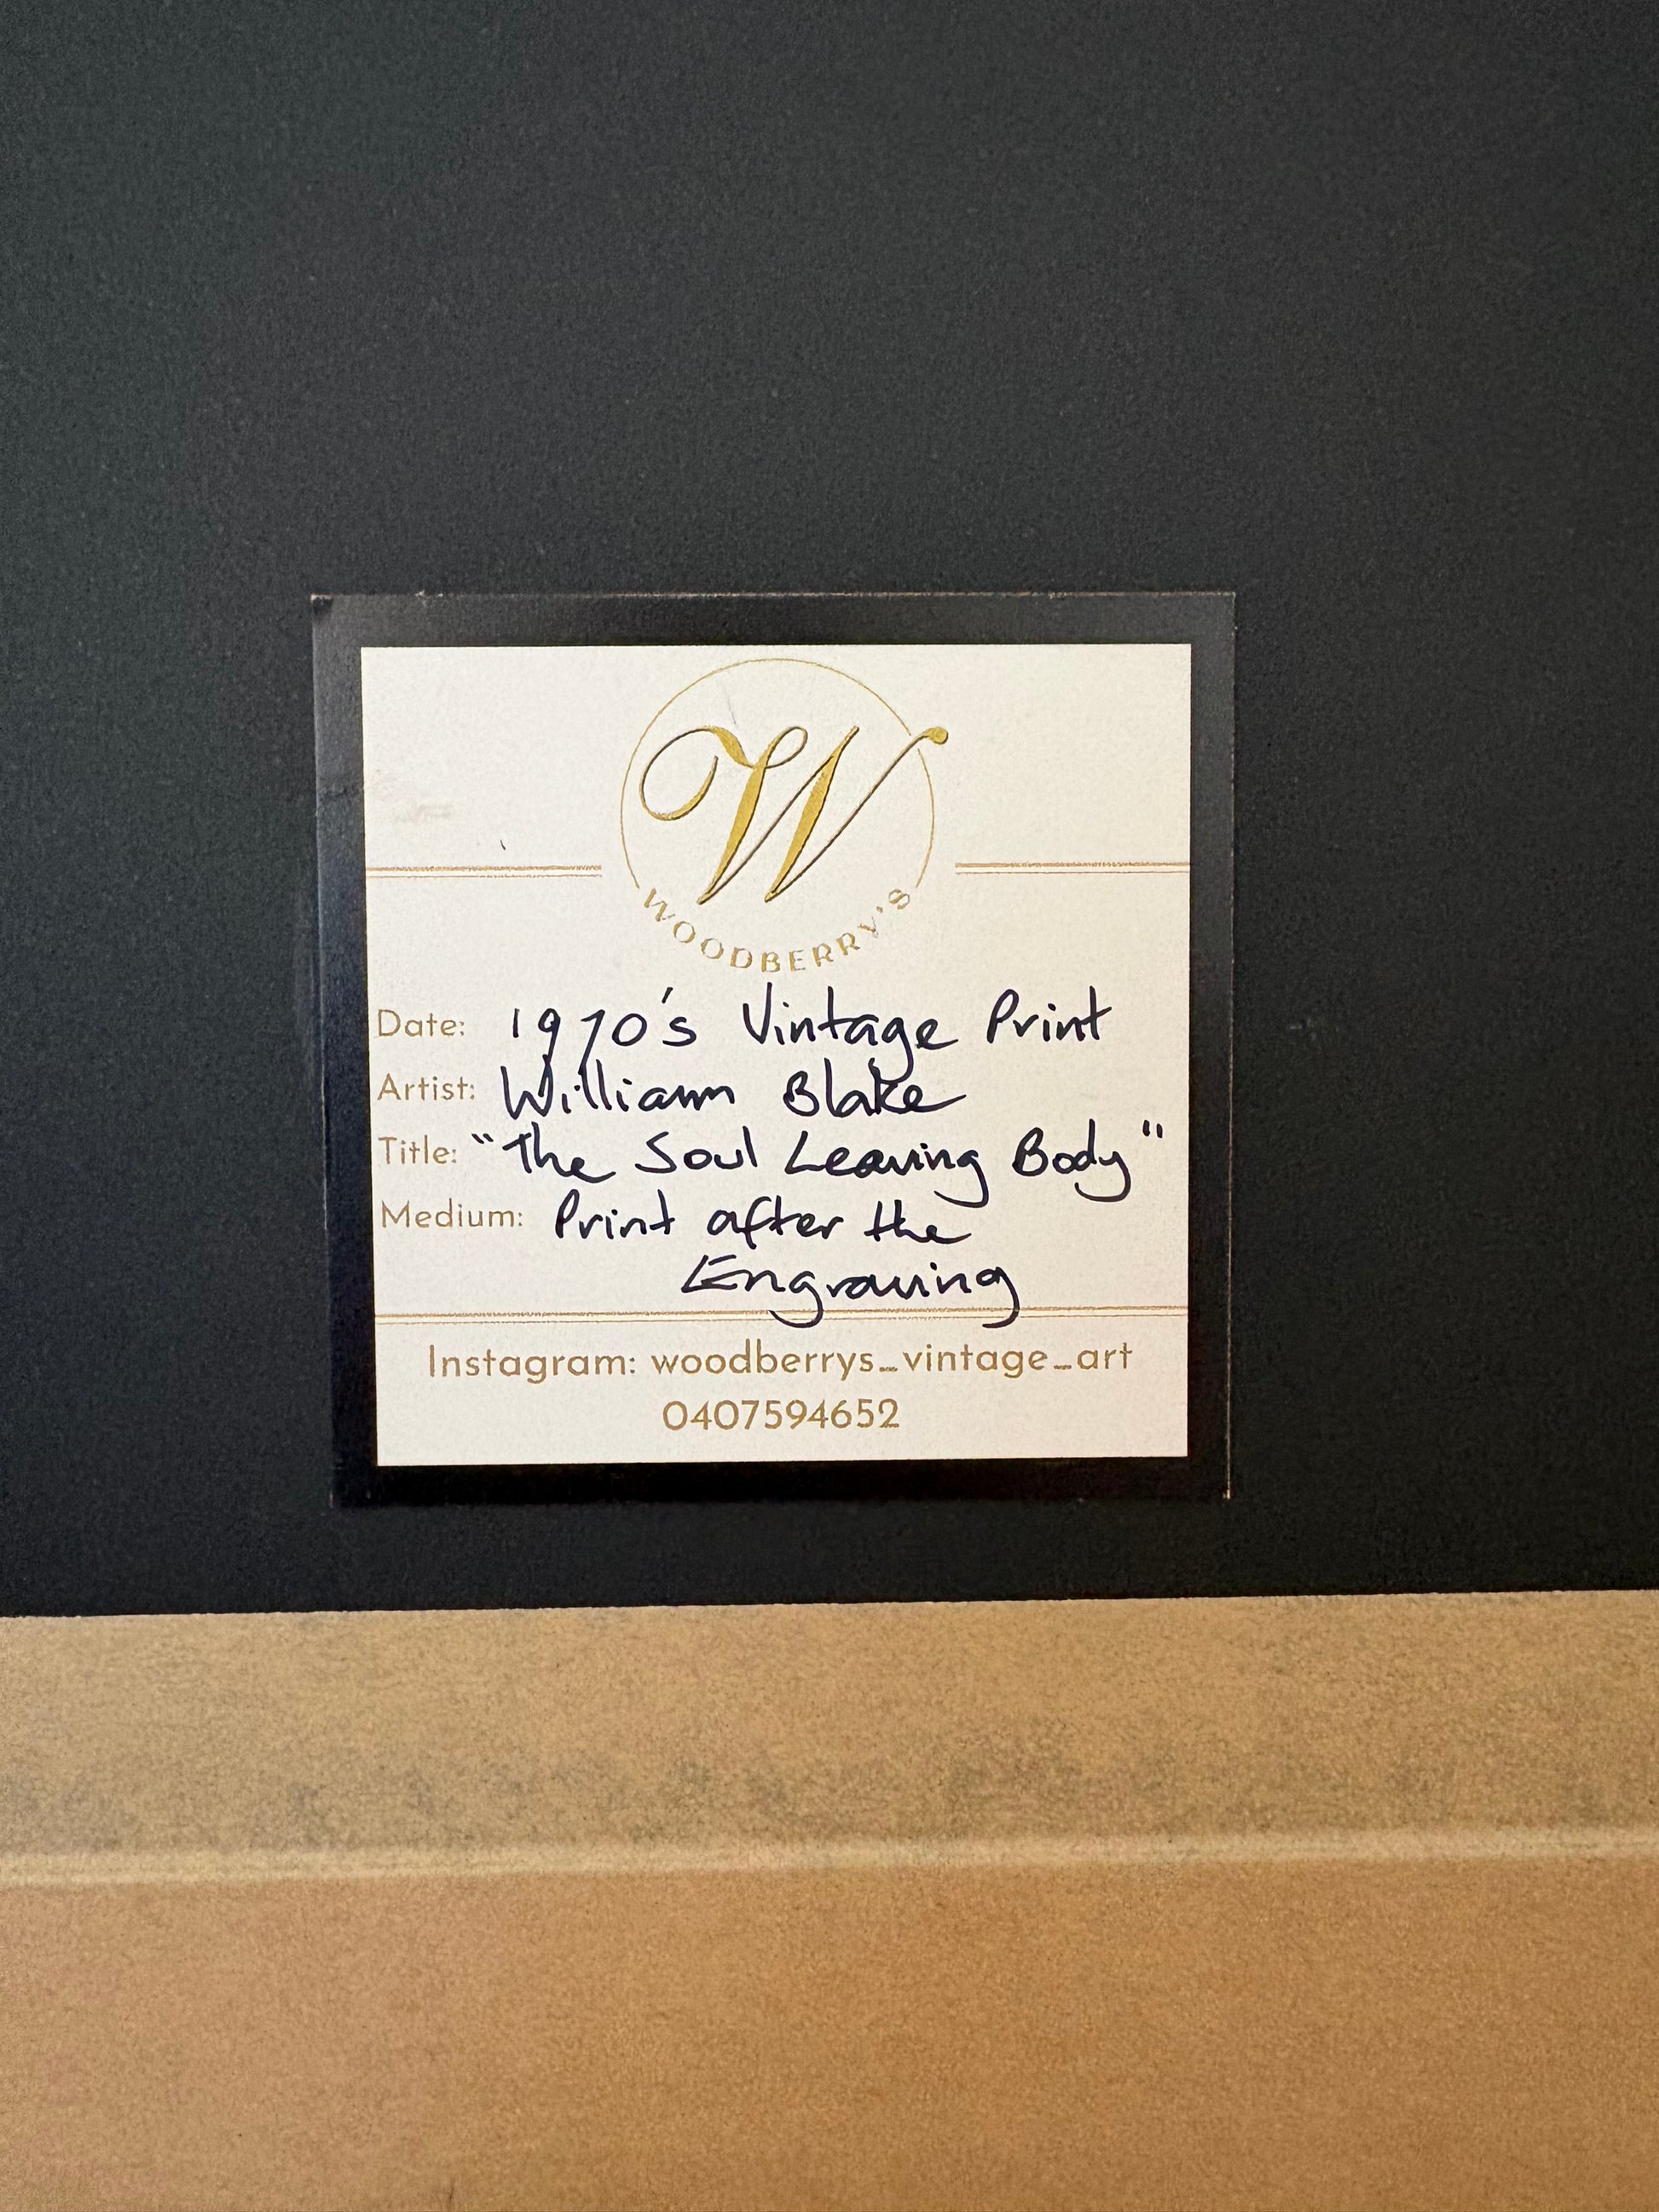 W
WOODBERRY'S
Date: 1970's Vintage Print
Artist: William Blake
Title: "The Soul Leaving Body"
Medium: Print after the
Engraving
Instagram: woodberrys_vintage_art
0407594652